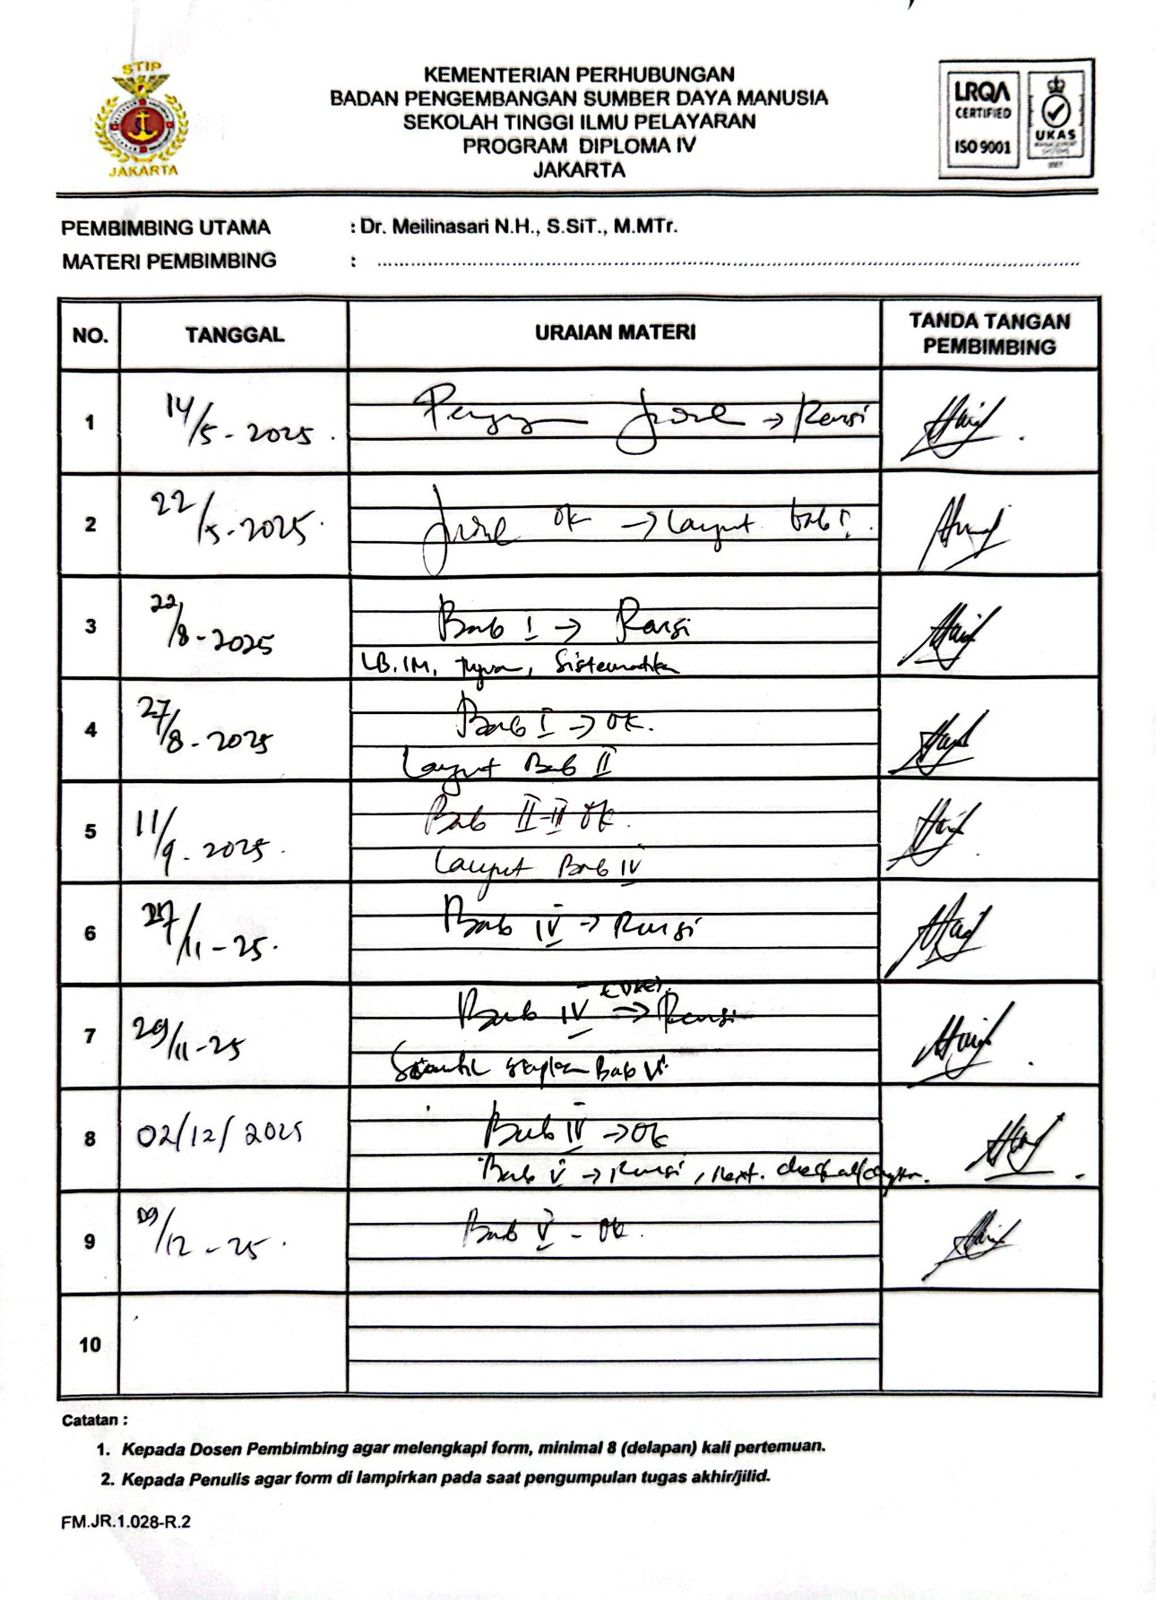 STIP
JAKARTA
KEMENTERIAN PERHUBUNGAN
BADAN PENGEMBANGAN SUMBER DAYA MANUSIA
SEKOLAH TINGGI ILMU PELAYARAN
PROGRAM DIPLOMA IV
JAKARTA
LRQA
CERTIFIED
ISO 9001
UKAS
MANAGEMENT
SYSTEMS
PEMBIMBING UTAMA : Dr. Meilinasari N.H., S.SiT., M.MTr.
MATERI PEMBIMBING :
NO. TANGGAL URAIAN MATERI TANDA TANGAN PEMBIMBING
1 14/5-2025. → Revisi
2 22/5-2025. Judul ok → Lanjut bab I.
3 22/8-2025 Bab I → Revisi
LB. IM, Tujuan, Sistematika
4 27/8-2025 Bab I → OK.
Lanjut Bab II
5 11/9-2025. Bab II-III OK.
Lanjut Bab IV
6 27/11-25. Bab IV → Revisi
7 29/11-25 Bab IV → Revisi
Bab V
8 02/12/2025 Bab IV → Ok
Bab V → Revisi,
9 09/12-25. Bab V - Ok.
10
Catatan :
1. Kepada Dosen Pembimbing agar melengkapi form, minimal 8 (delapan) kali pertemuan.
2. Kepada Penulis agar form di lampirkan pada saat pengumpulan tugas akhir/jilid.
FM.JR.1.028-R.2